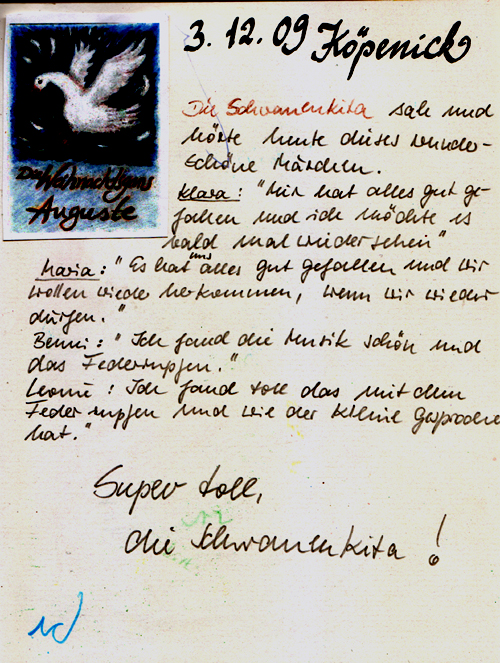 3.12.09 Köpenick
Die Weihnachtsgans
Auguste
Die Schwanenkita sah und
hörte heute dieses wunder-
schöne Märchen.
Klara: "Mir hat alles gut ge-
fallen und ich möchte es
bald mal wieder sehen"
Maria: "Es hat uns alles gut gefallen und wir
wollen wieder herkommen, wenn wir wieder
dürfen."
Benni: "Ich fand die Musik schön und
das Federrupfen."
Leonie: Ich fand toll das mit dem
Feder rupfen und wie der kleine gesprochen
hat."
Super toll,
die Schwanenkita!